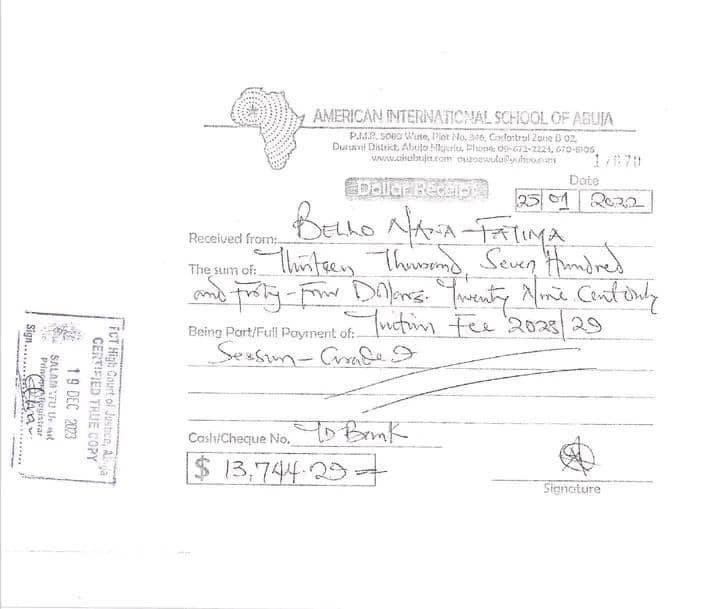 AMERICAN INTERNATIONAL SCHOOL OF ABUJA
P.M.B. 5080 Wuse, Plot No. 346, Cadastral Zone B 02,
Durumi District, Abuja Nigeria. Phone: 09-672-2224, 670-8106
Dollar Receipt
Date
25 01 2022
Received from: BELLO NANA-FATIMA
The sum of: Thirteen Thousand, Seven Hundred
and Forty-Four Dollars. Twenty Nine Cent only
Being Part/Full Payment of: Tuition Fee 2028/29
Session - Grade 9
Cash/Cheque No. TD Bank
$ 13,744.29
Signature
FCT High Court of Justice, Abuja
CERTIFIED TRUE COPY
19 DEC 2023
Registrar
Sign